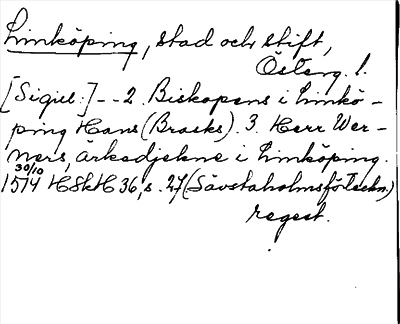 Linköping, stad och stift,
Österg. l.
[Sigill:] -- 2. Biskopens i Linkö-
ping Hans (Brasks). 3. Herr Wer-
ners, ärkedjekne i Linköping.
30/10
1514 HSkH 36, s. 27 (Sävstaholmsförteckn.)
regest.